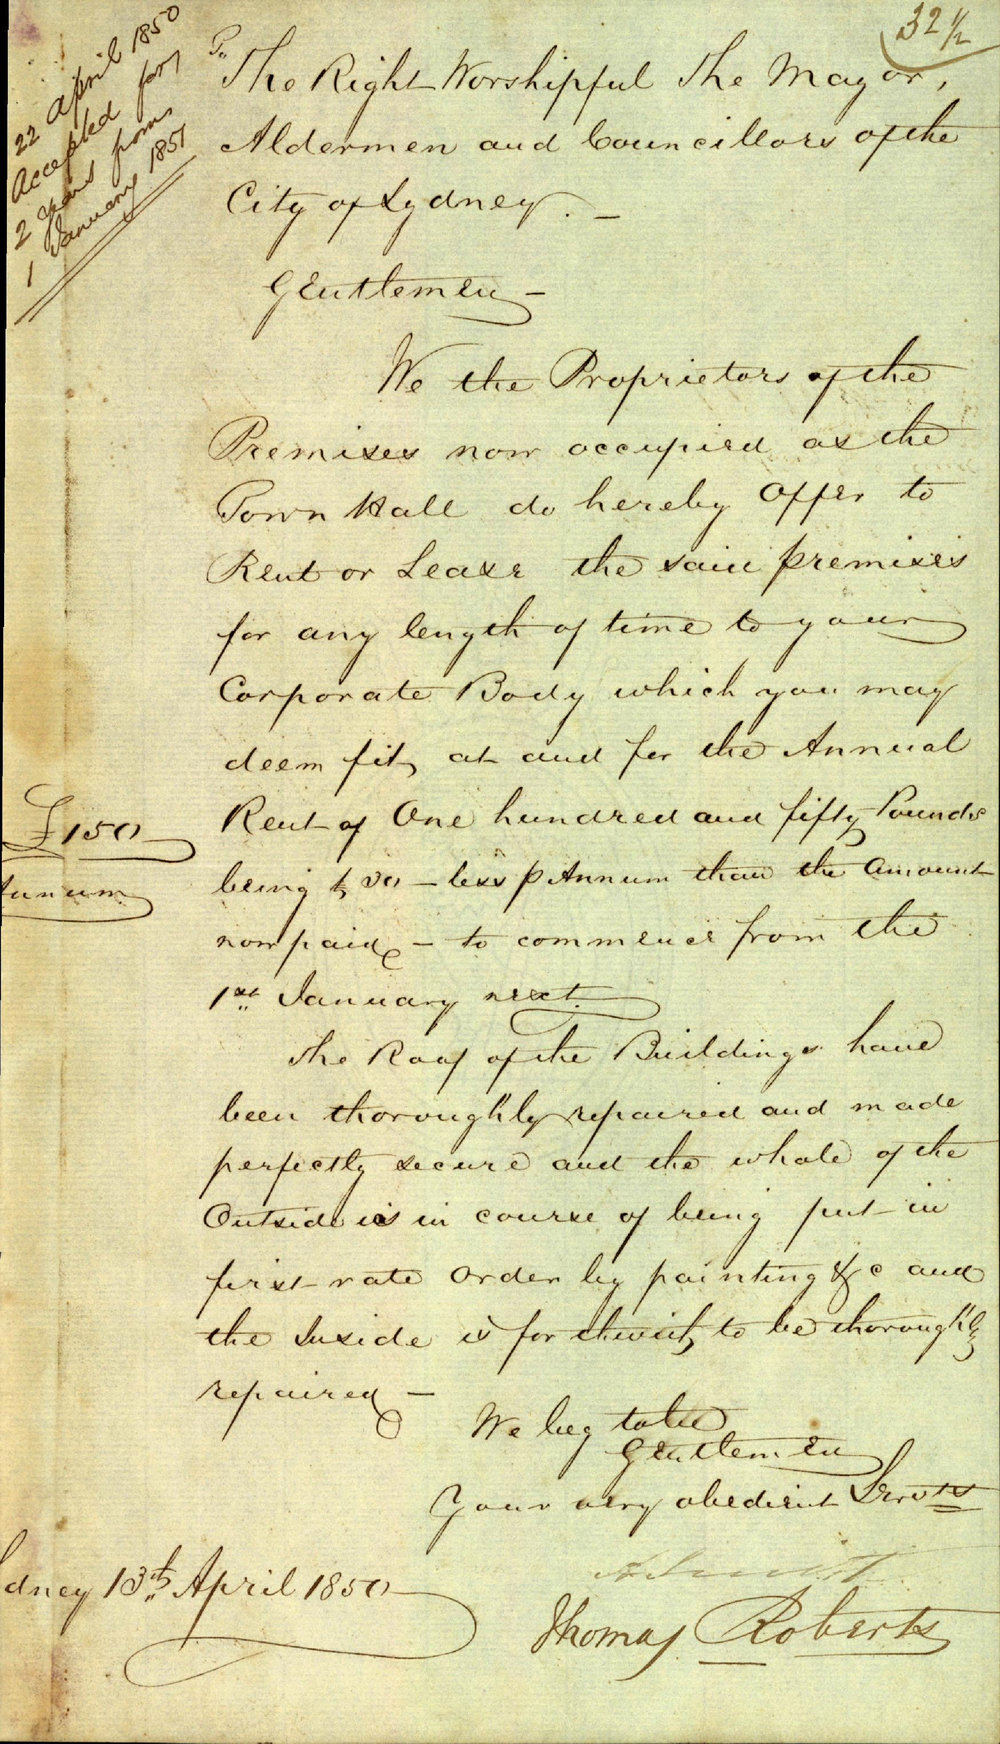 32 1/2
22 April 1850
Accepted for
2 years from
1 January 1851
To
The Right Worshipful The Mayor,
Aldermen and Councillors of the
City of Sydney. _
Gentlemen _
We the Proprietors of the
Premises now occupied as the
Town Hall do hereby Offer to
Rent or Lease the said premises
for any length of time to your
Corporate Body which you may
deem fit, at and for the Annual
£150
Rent of One hundred and fifty Pounds
Annum
being £ 50 _ less p Annum than the Amount
now paid _ to commence from the
1st January next.
The Roof of the Buildings have
been thoroughly repaired and made
perfectly secure and the whole of the
Outside is in course of being put in
first rate order by painting &c and
the Inside is forthwith to be thoroughly
repaired _
We beg to be
Gentlemen
Your very obedient Servts
dney 13th April 1850
Thomas Roberts